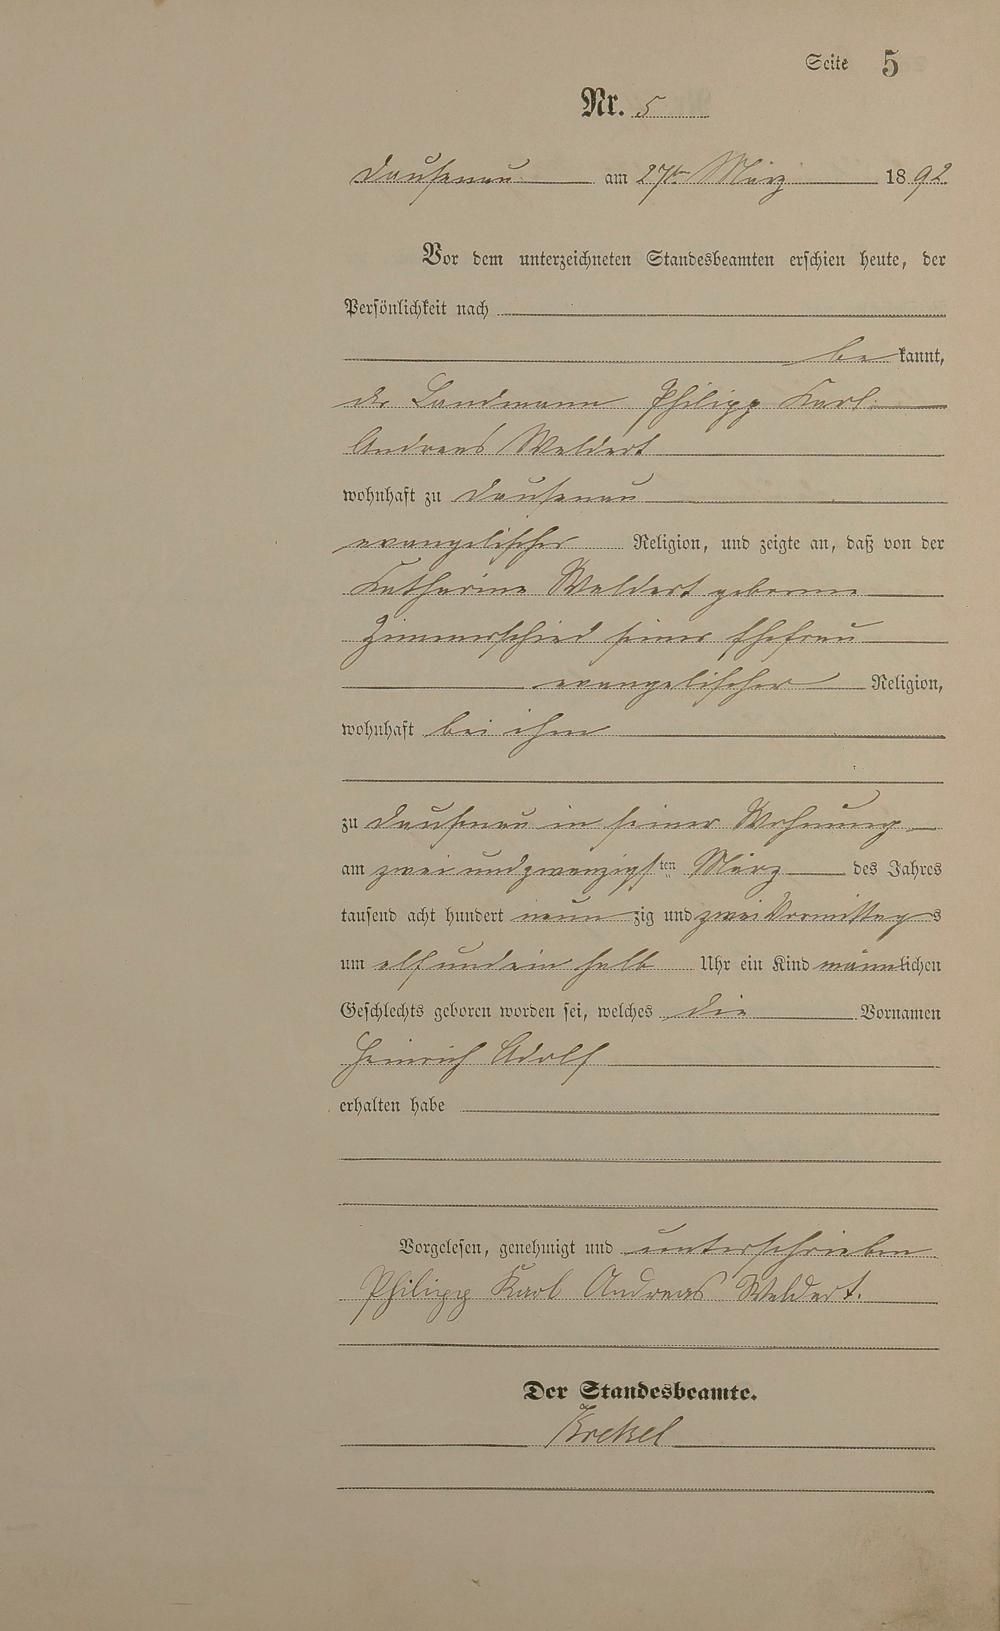 Seite 5
Nr. 5
Dausenau am 27ten März 1892
Vor dem unterzeichneten Standesbeamten erschien heute, der
Persönlichkeit nach
be kannt,
der Landmann Philipp Karl
Andreas Weldert
wohnhaft zu Dausenau
evangelischer Religion, und zeigte an, daß von der
Katharine Weldert geborene
Zimmerschied seiner Ehefrau
evangelischer Religion,
wohnhaft bei ihm
zu Dausenau in seiner Wohnung
am zwei und zwanzigsten März des Jahres
tausend acht hundert neun zig und zwei Vormittags
um elf und ein halb Uhr ein Kind männlichen
Geschlechts geboren worden sei, welches die Vornamen
Heinrich Adolf
erhalten habe
Vorgelesen, genehmigt und unterschrieben
Philipp Karl Andreas Weldert.
Der Standesbeamte.
Krekel